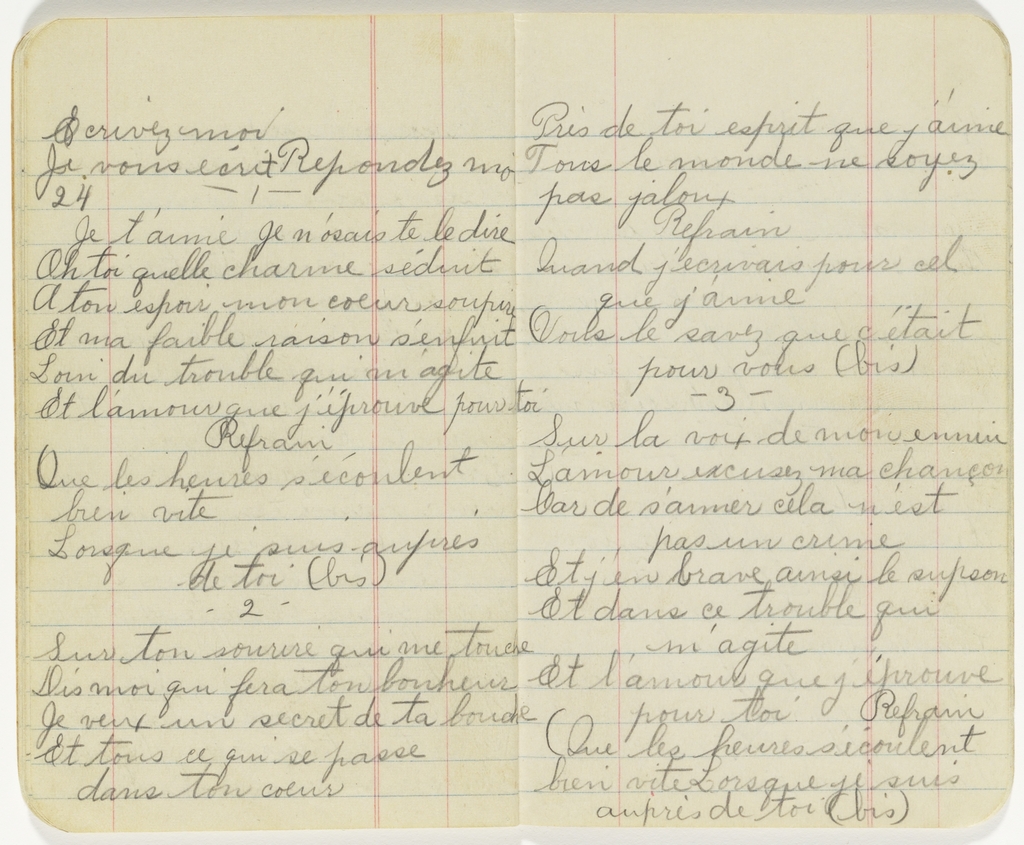 Ecrivez moi
Je vous écrit Repondez mo
24 — 1 —
Je t'aime Je n'osais te le dire
Oh toi quelle charme séduit
A ton espoir mon coeur soupire
Et ma faible raison s'enfuit
Loin du trouble qui m'agite
Et l'amour que j'éprouve pour toi
Refrain
Que les heures s'écoulent
bien vite
Lorsque je suis auprés
de toi (bis)
- 2 -
Sur ton sourire qui me touche
Dis moi qui fera ton bonheur
Je veux un secret de ta bouche
Et tous ce qui se passe
dans ton coeur
Près de toi esprit que j'aime
Tous le monde ne soyez
pas jaloux
Refrain
Quand j'écrivais pour cel
que j'aime
Vous le savez que c'était
pour vous (bis)
- 3 -
Sur la voix de mon ennui
L'amour excusez ma chançon
Car de s'aimer cela n'est
pas un crime
Et j'en brave ainsi le supson
Et dans ce trouble qui
m'agite
Et l'amour que j'éprouve
pour toi Refrain
(Que les heures s'écoulent
bien vite Lorsque je suis
auprès de toi (bis)